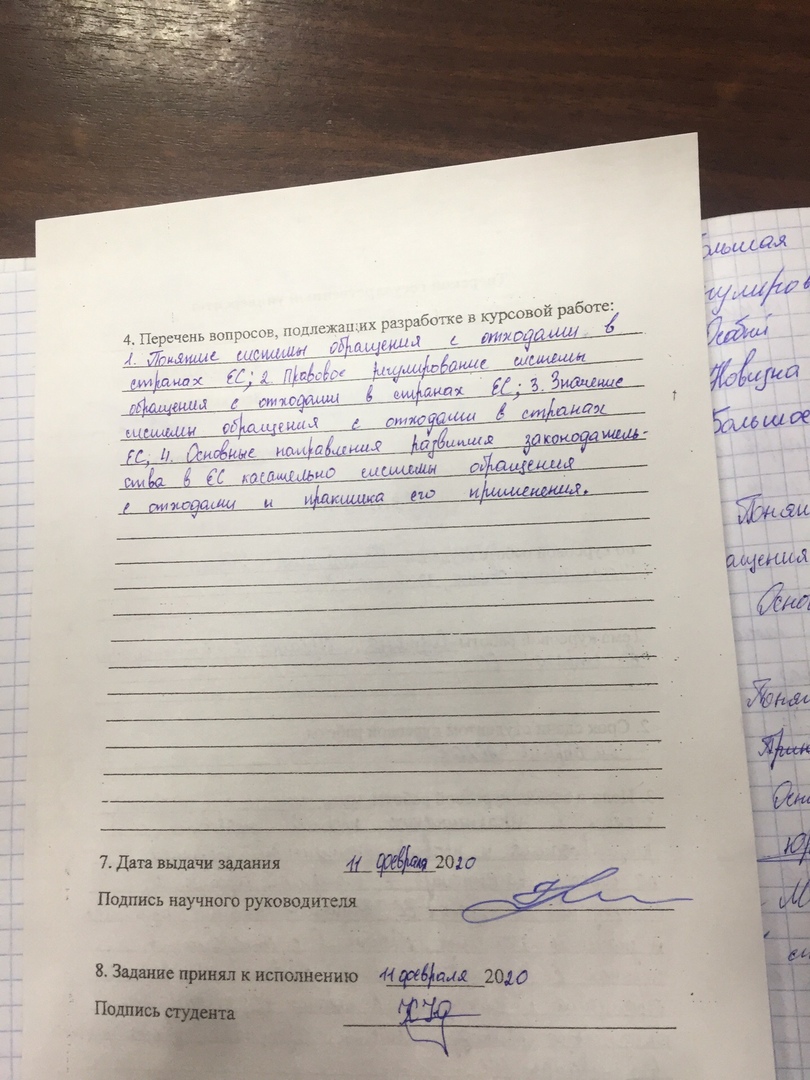 4. Перечень вопросов, подлежащих разработке в курсовой работе:
1. Понятие системы обращения с отходами в
странах ЕС; 2. Правовое регулирование системы
обращения с отходами в странах ЕС; 3. Значение
системы обращения с отходами в странах
ЕС, 4. Основные направления развития законодатель-
ства в ЕС касательно системы обращения
с отходами и практика его применения.
7. Дата выдачи задания 11 февраля 2020
Подпись научного руководителя
8. Задание принял к исполнению 11 февраля 2020
Подпись студента
Особый
Новизна
Большое